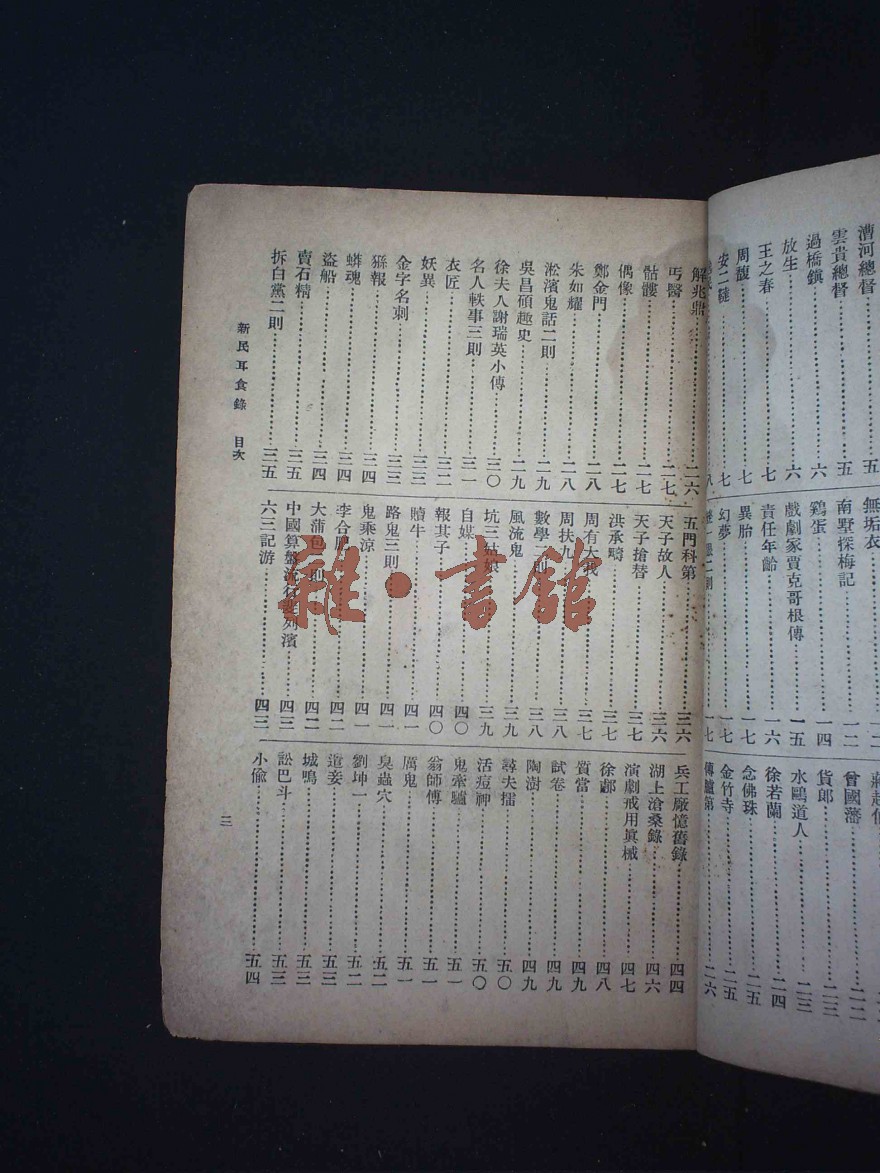 漕河總督……五
雲貴總督……五
過橋鎭……六
放生……六
王之春……七
周馥……七
安二韃……七
無垢衣
南墅探梅記……一二
鷄蛋……一四
戲劇家賈克哥根傳……一五
責任年齡……一六
異胎……一七
幻夢……一七
曾國藩……二二
貨郎……二三
水鷗道人……二三
徐若蘭……二四
念佛珠……二五
金竹寺……二五
傳臚第……二六
解兆鼎……二六
丐醫……二七
骷髏……二七
偶像……二七
鄭金門……二八
朱如耀……二八
淞濱鬼話二則……二九
吳昌碩趣史……二九
徐夫人謝瑞英小傳……三〇
名人軼事三則……三一
衣匠……三二
妖異……三三
金字名刺……三三
猻報……三四
蟒魂……三四
盜船……三四
賣石精……三五
拆白黨二則……三五
五門科第……三六
天子故人……三六
天子搶替……三七
洪承疇……三七
周有大我……三七
周扶九……三八
數學二則……三八
風流鬼……三九
坑三姑娘……三九
自媒……四〇
報其子……四〇
贖牛……四一
路鬼三則……四一
鬼乘涼……四一
李合肥……四二
大蒲包二則……四二
中國算盤流行斐列濱……四三
六三記游……四三
兵工廠憶舊錄……四四
湖上滄桑錄……四六
演劇戒用眞械……四七
徐鄘……四八
質當……四九
試卷……四九
陶澍……四九
尋夫擂……五〇
活瘟神……五〇
鬼牽驢……五一
翁師傅……五一
厲鬼……五一
臭蟲穴……五二
劉坤一……五二
逭妾……五三
城鳴……五三
訟巴斗……五三
小偸……五四
新民耳食錄 目次
三
雜·書館